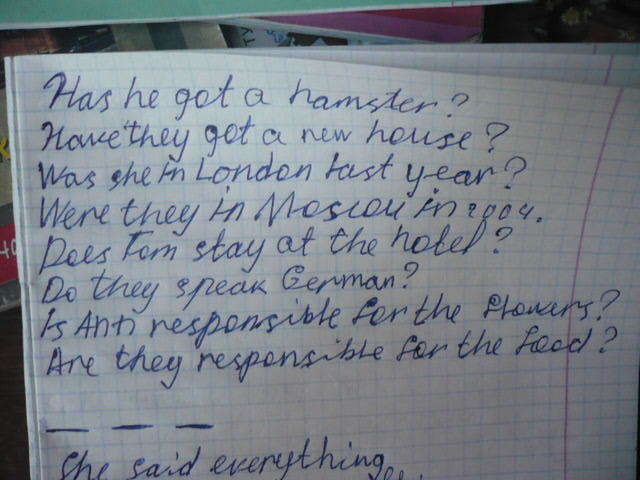 Has he got a hamster?
Have they got a new house?
Was she in London last year?
Were they in Moscow in 2004.
Does Tom stay at the hotel?
Do they speak German?
Is Ann responsible for the flowers?
Are they responsible for the food?
— — —
She said everything